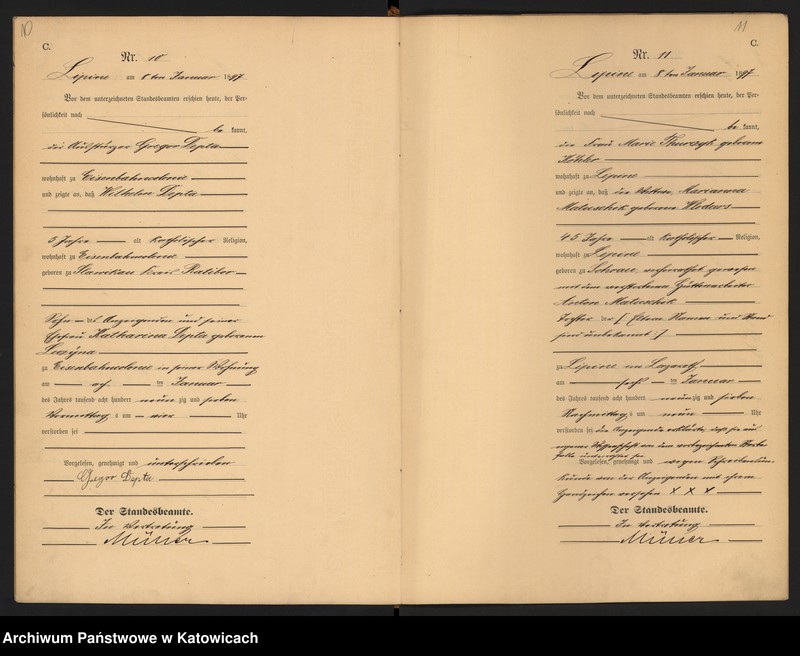 10
C.
Nr. 10
Lipine am 8ten Januar 1897
Vor dem unterzeichneten Standesbeamten erschien heute, der Per-
sönlichkeit nach
be kannt,
der Gregor Depta
wohnhaft zu Eisenbahnkolonie
und zeigte an, daß Wilhelm Depta
5 Jahre alt katholischer Religion,
wohnhaft zu Eisenbahnkolonie
geboren zu Slawikau Kreis Ratibor
Sohn des Anzeigenden und seiner
Ehefrau Katharina Depta geborenen
zu Eisenbahnkolonie in seiner Wohnung
am acht ten Januar
des Jahres tausend acht hundert neun zig und sieben
Vormittag s um vier Uhr
verstorben sei
Vorgelesen, genehmigt und unterschrieben
Gregor Depta
Der Standesbeamte.
In Vertretung
Müller
11
C.
Nr. 11
Lipine am 8ten Januar 1897
Vor dem unterzeichneten Standesbeamten erschien heute, der Per-
sönlichkeit nach
be kannt,
die Frau Marie geborene
Köhler
wohnhaft zu Lipine
und zeigte an, daß die Wittwe Marianna
geborene
45 Jahre alt katholischer Religion,
wohnhaft zu Lipine
geboren zu Sohrau, verheirathet gewesen
mit dem verstorbenen Hüttenarbeiter
Anton
Tochter der [: Eltern Namen und Stand
sind unbekannt :]
zu Lipine im Lazareth
am sechs ten Januar
des Jahres tausend acht hundert neun zig und sieben
Nachmittag s um neun Uhr
verstorben sei die Anzeigende erklärte, daß sie aus
eigener Wissenschaft von dem vorbezeichneten Sterbe-
falle unterrichtet sei
Vorgelesen, genehmigt und wegen Schreibensun-
kunde von der Anzeigenden mit ihrem
Handzeichen versehen X X X
Der Standesbeamte.
In Vertretung
Müller
Archiwum Państwowe w Katowicach